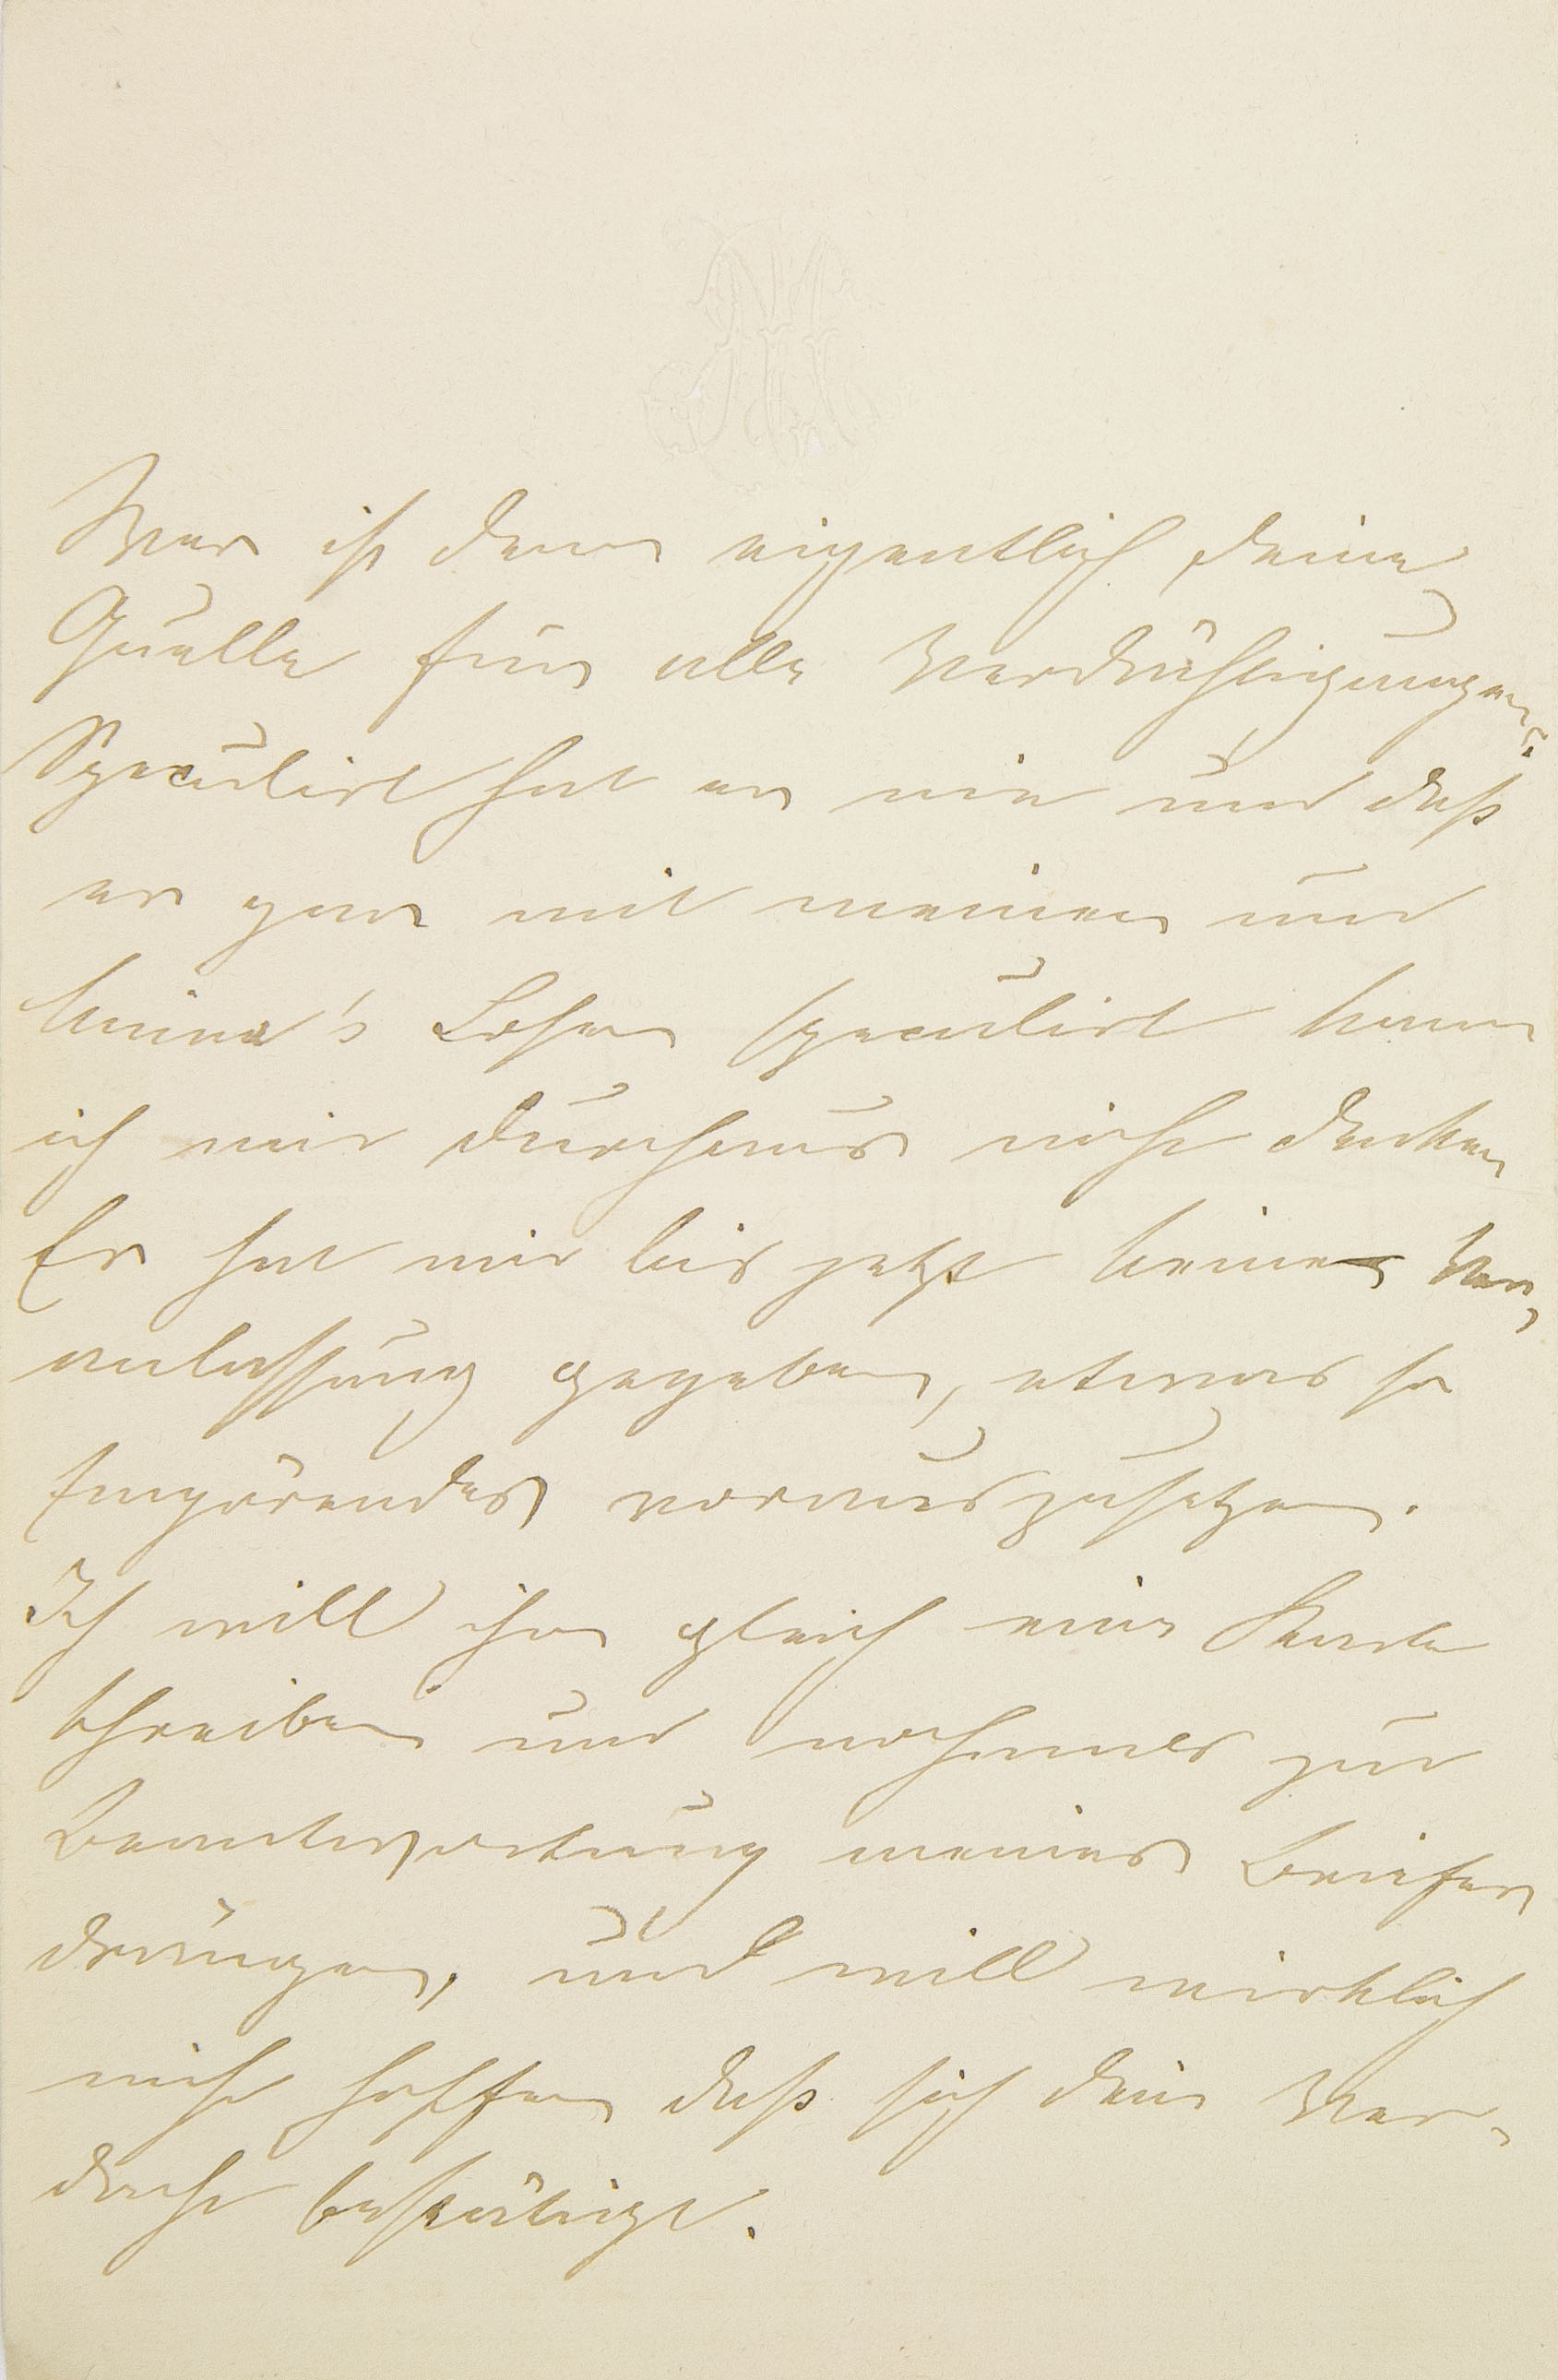 Wer ist denn eigentlich deine
Quelle für alle Verdächtigungen?
Speculirt hat er nie und daß
er gar mit meinen und
Losen speculirt kann
ich mir durchaus nicht denken
Er hat mir bis jetzt keine Ver„
anlassung gegeben, etwas so
Empörendes vorauszusetzen.
Ich will ihm gleich eine Karte
schreiben und nochmals zur
Beantwortung meines Briefes
drängen, und will wirklich
nicht hoffen daß sich dein Ver„
dacht bestätigt.